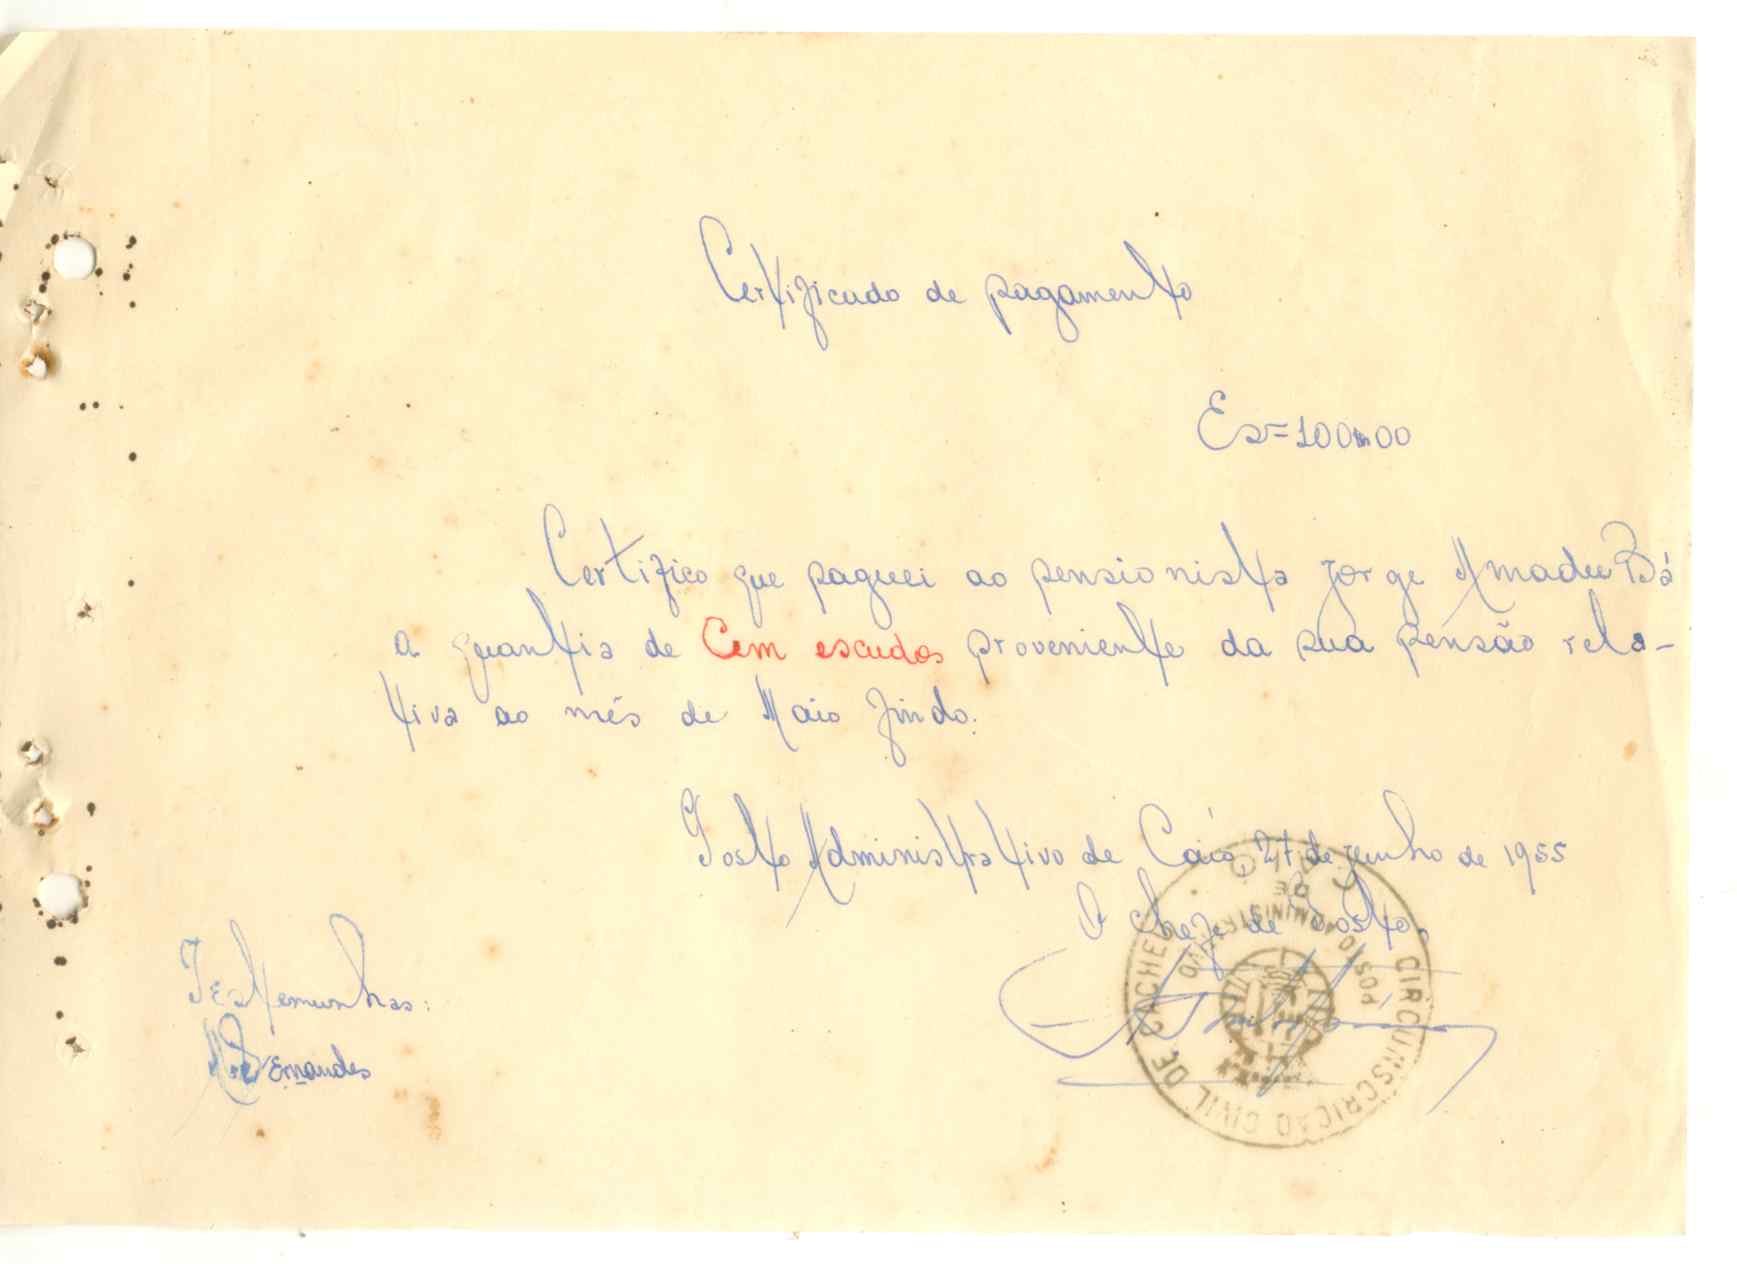 Certificado de pagamento
Es=100$00
Certifico que paguei ao pensionista Jorge Amadu Bá
a quantia de Cem escudos proveniente da sua pensão rela-
tiva ao mês de Maio findo.
Posto Administrativo de Caió 27 de junho de 1955
O chefe de Posto,
CIRCUNSCRIÇÃO CIVIL DE CACHEU
POSTO ADMINISTRATIVO
DE
Testemunhas:
Fernandes